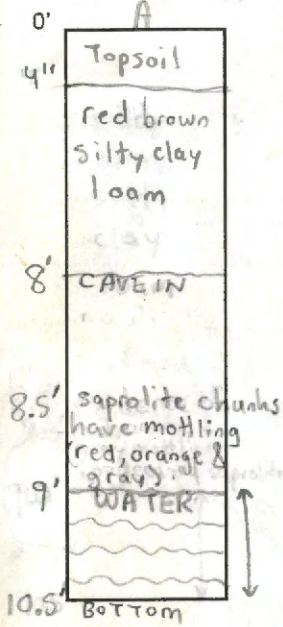 A
0'
Topsoil
4"
red brown
silty clay
loam
8'
CAVE IN
8.5' saprolite chunks
have mottling
(red, orange &
gray).
9'
WATER
10.5'
BOTTOM